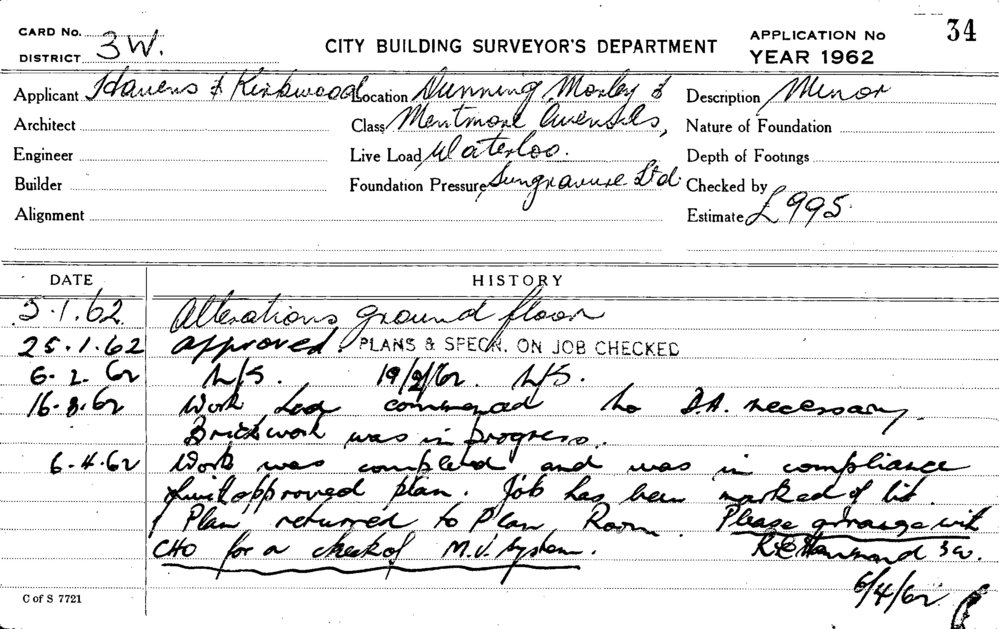 CARD No.
DISTRICT 3W.
CITY BUILDING SURVEYOR'S DEPARTMENT
APPLICATION No 34
YEAR 1962
Applicant Havens & Kirkwood Location Dunning, Morley & Description Minor
Architect Class Mentmore Avenues, Nature of Foundation
Engineer Live Load Waterloo. Depth of Footings
Builder Foundation Pressure Sungravure Ltd. Checked by
Alignment Estimate £995.
DATE HISTORY
5.1.62. Alterations ground floor
25.1.62 approved. PLANS & SPECN. ON JOB CHECKED
6.2.62 N/S. 19/2/62. N/S.
16.3.62 Work had commenced no D.A. necessary.
Brickwork was in progress.
6.4.62 Work was completed and was in compliance
with approved plan. Job has been marked of list.
Plan returned to Plan Room. Please arrange with
CHO for a check of M.V. System. 3W.
6/4/62
C of S 7721